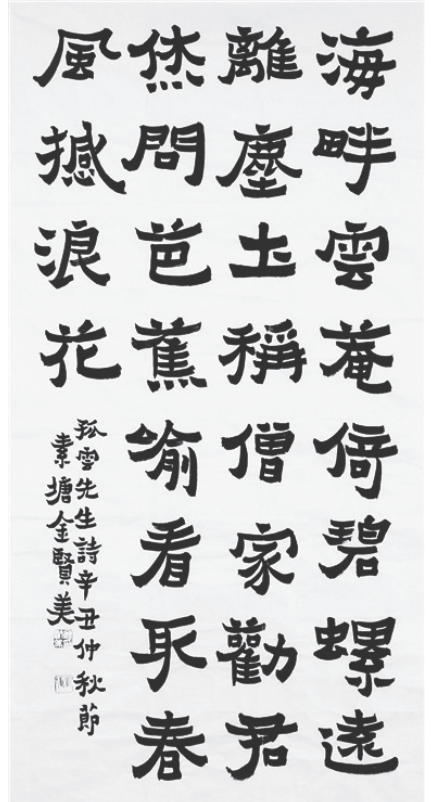 海畔雲菴倚碧螺遠
離塵土稱僧家勸君
烋問芭蕉喻看取春
風撼浪花
孤雲先生詩辛丑仲秋節
素塘金賢美